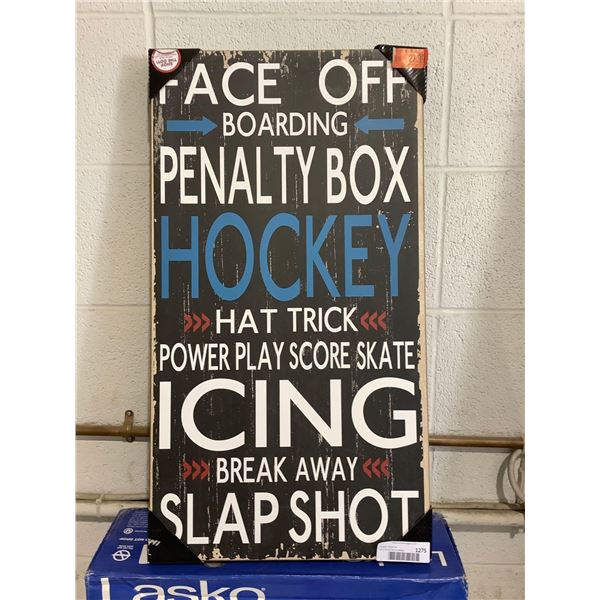 FACE OFF
BOARDING
PENALTY BOX
HOCKEY
HAT TRICK
POWER PLAY SCORE SKATE
ICING
BREAK AWAY
SLAP SHOT
1275
Lasko